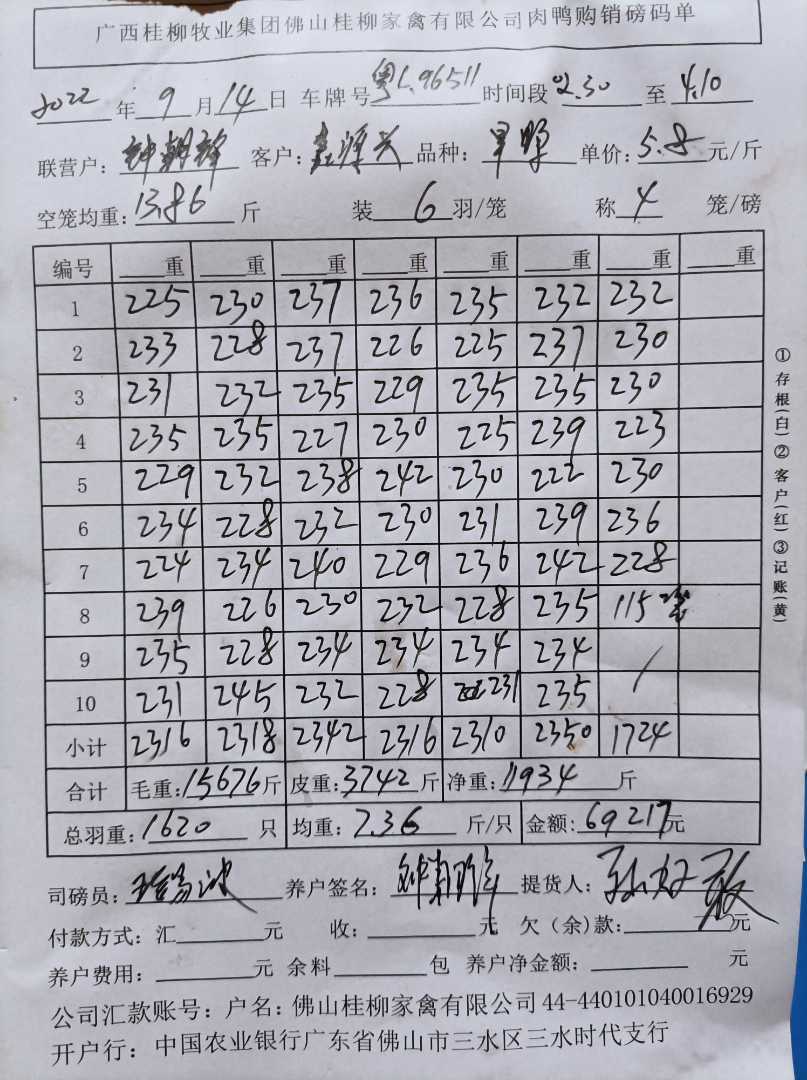 广西桂柳牧业集团佛山桂柳家禽有限公司肉鸭购销磅码单
2022年9月14日 车牌号粤L96511 时间段02.30至4.10
联营户: 客户:鑫源兴 品种: 单价:5.8元/斤
空笼均重:13.86斤 装6羽/笼 称4笼/磅
编号 重 重 重 重 重 重 重 重
1 225 230 237 236 235 232 232
2 233 228 237 226 225 237 230
3 231 232 235 229 235 235 230
4 235 235 227 230 225 239 223
5 229 232 238 242 230 222 230
6 234 228 232 230 231 239 236
7 224 234 240 229 236 242 228
8 239 226 230 232 228 235 115 2笼
9 235 228 234 234 234 234 /
10 231 245 232 228 231 235
小计 2316 2318 2342 2316 2310 2350 1724
合计 毛重:15676斤 皮重:3742斤 净重:11934斤
总羽重:1620只 均重:7.36斤/只 金额:69217元
司磅员: 养户签名: 提货人:
付款方式:汇 元 收: 元 欠(余)款: 元
养户费用: 元 余料 包 养户净金额: 元
公司汇款账号:户名:佛山桂柳家禽有限公司44-440101040016929
开户行:中国农业银行广东省佛山市三水区三水时代支行
①存根(白)②客户(红)③记账(黄)